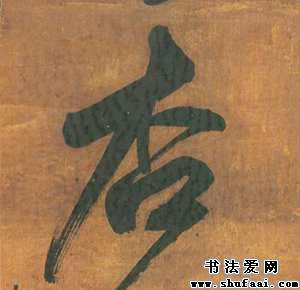 杏
书法爱网
www.shufaai.com